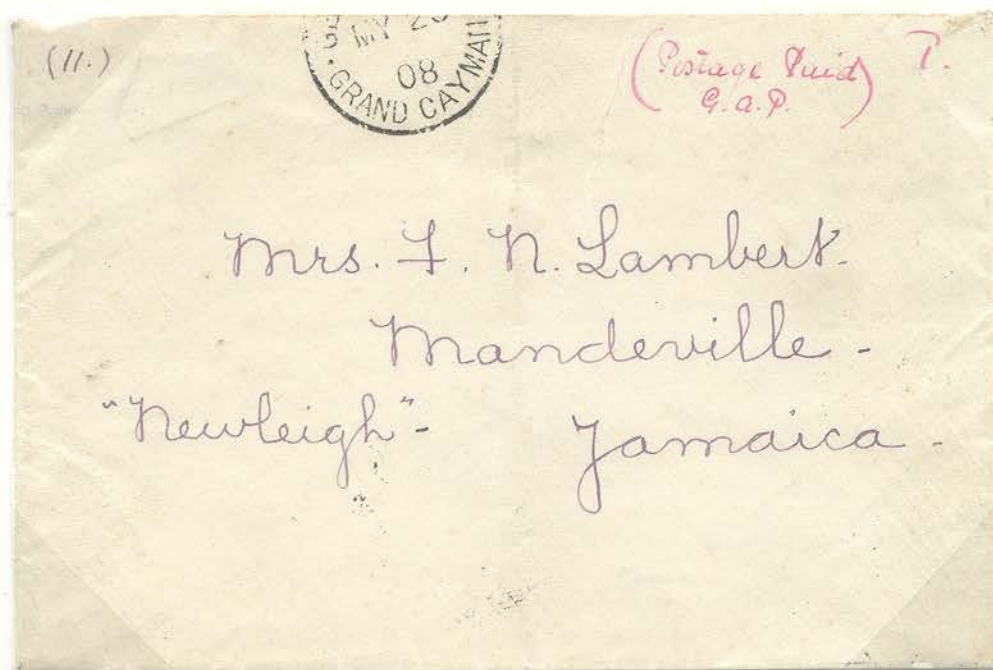 (11.)
MY 2
08
GRAND CAYMAN
(Postage Paid) T.
G.A.P.
Mrs. F. N. Lambert.
Mandeville -
"Newleigh" - Jamaica -